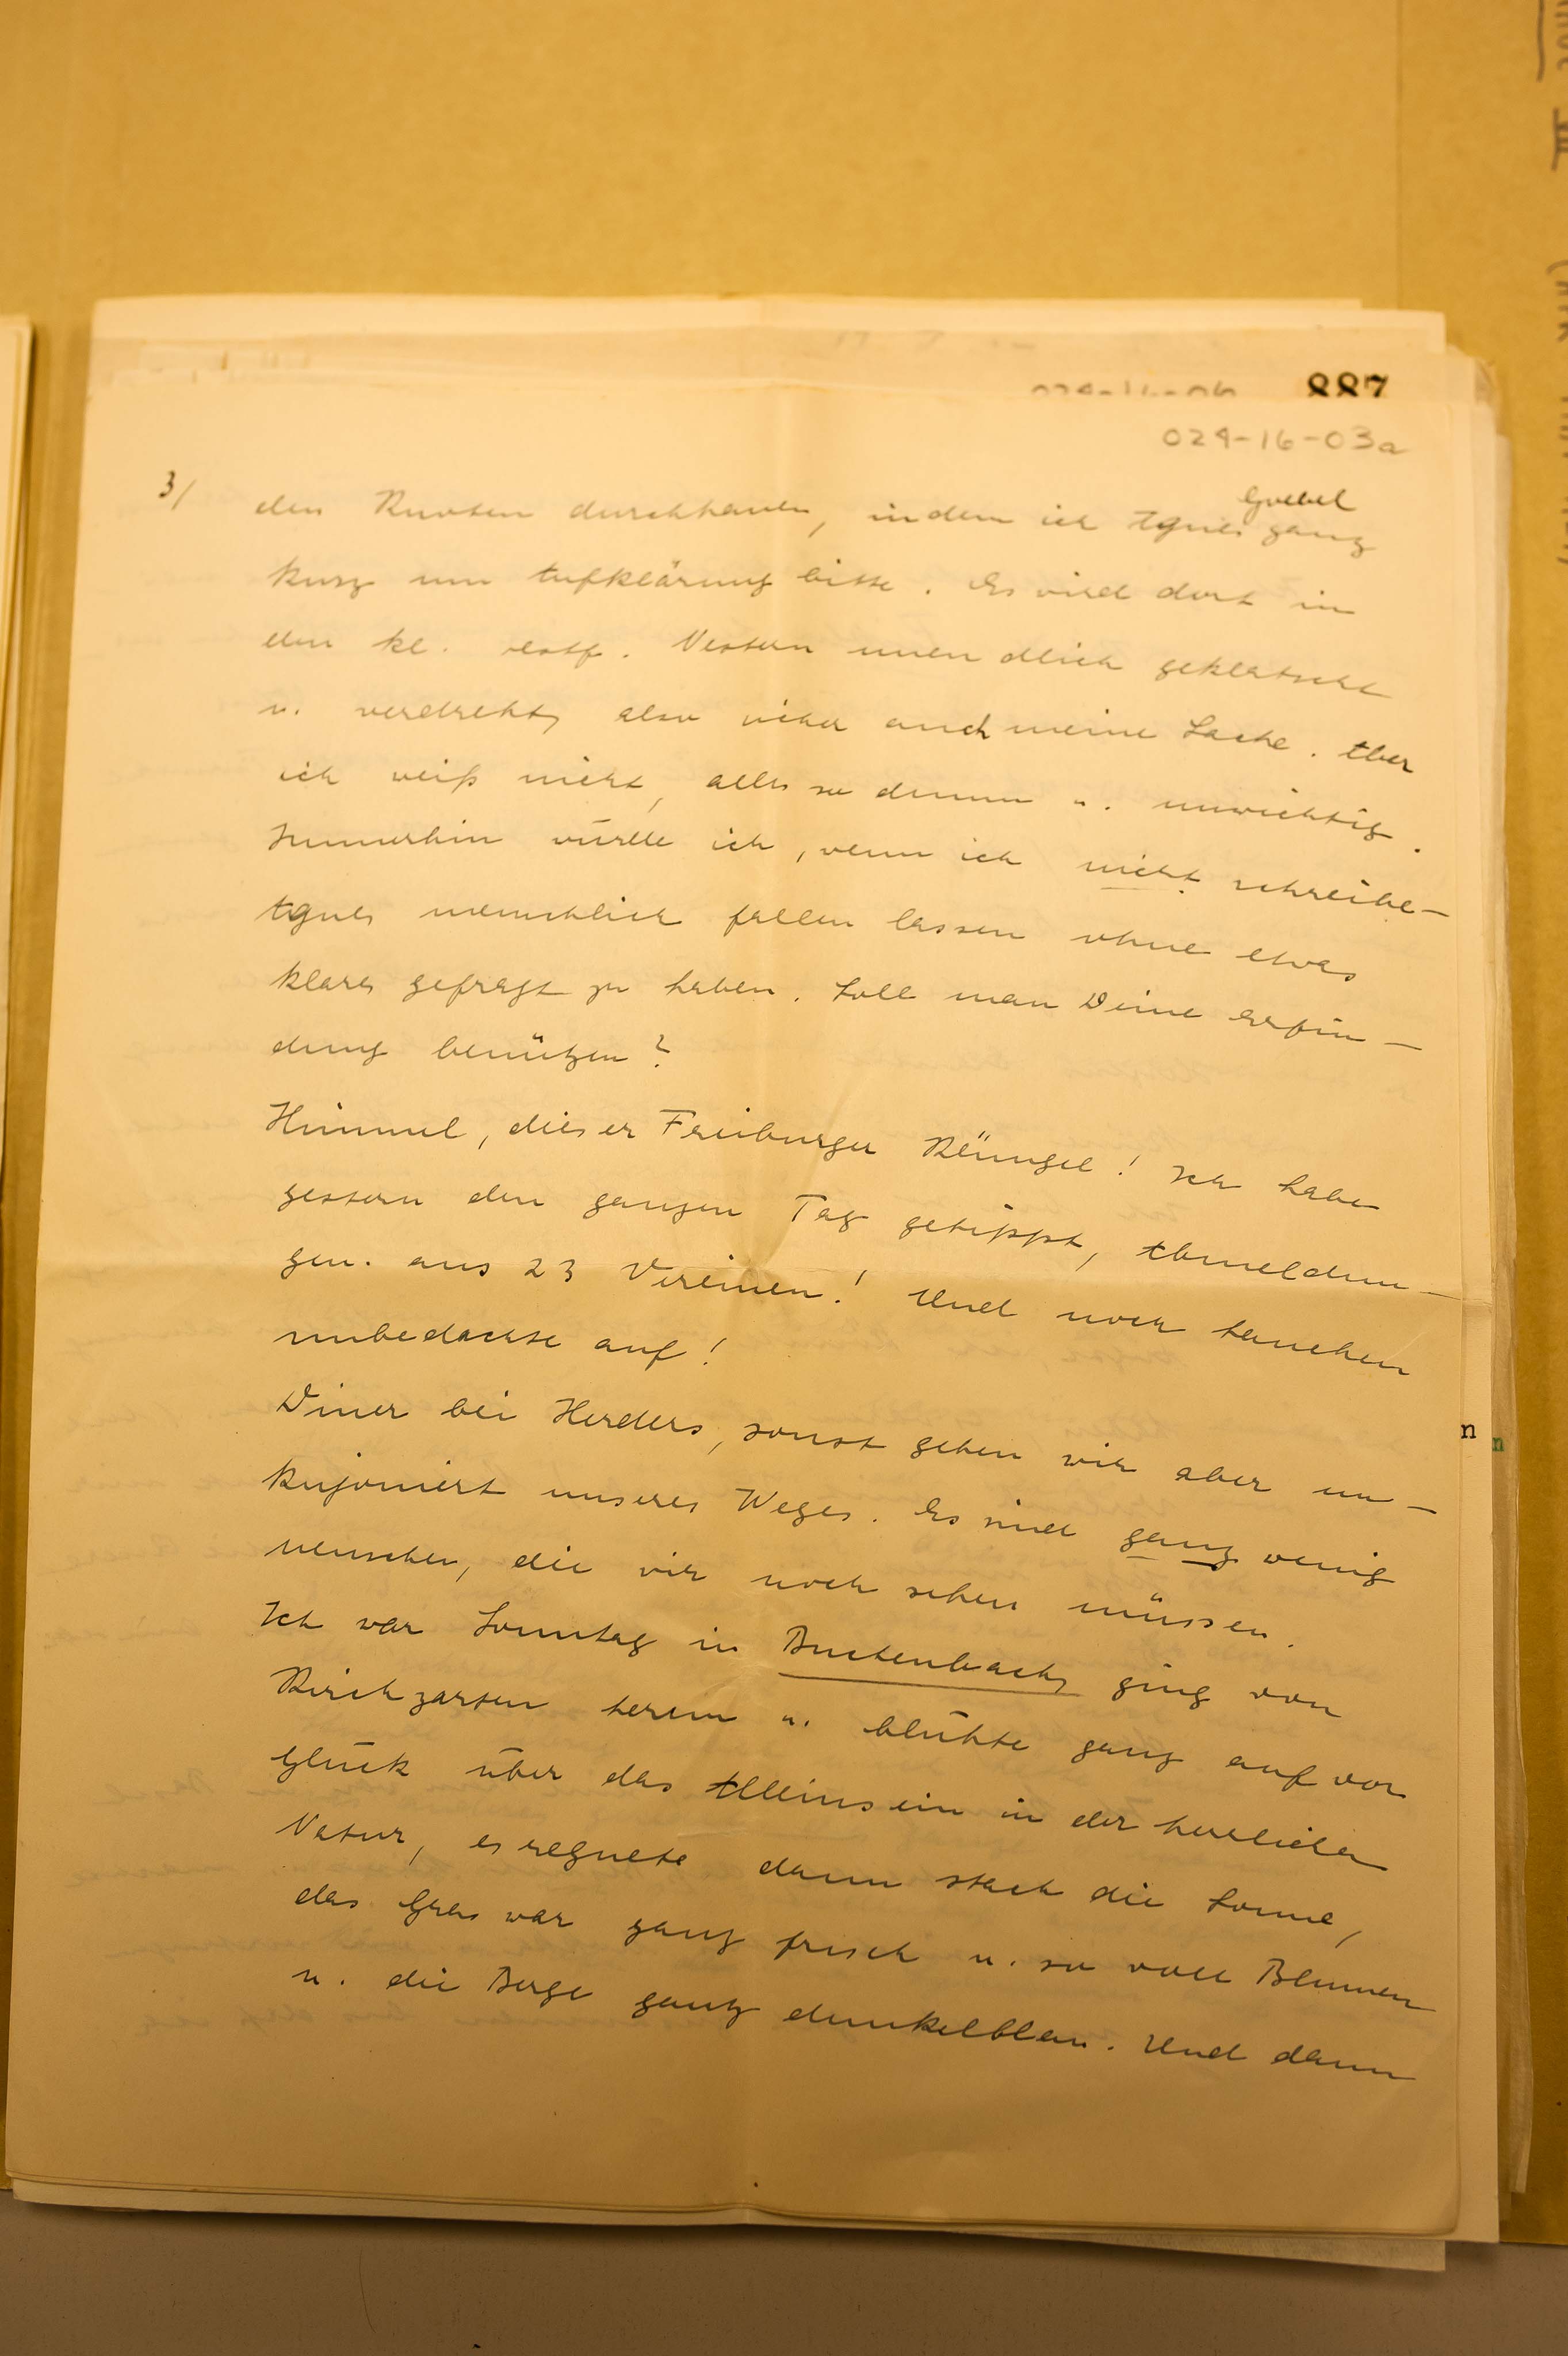 887
024-16-03a
3/
Goebel
den Knoten durchhauen, indem ich Agnes ganz
kurz um Aufklärung bitte. Es wird dort in
den kl. Nestern unendlich geklatscht
u. verdreht, also sicher auch meine Sache. Aber
ich weiß nicht, alles so dumm u. unwichtig.
Immerhin würde ich, wenn ich nicht schreibe –
Agnes menschlich fallen lassen ohne etwas
klares gefragt zu haben. Soll man Deine Erfin-
dung benützen?
Himmel, dieser Freiburger Klüngel! Ich habe
gestern den ganzen Tag getippt, Abmeldun-
gen. aus 23 Vereinen! Und noch tauchen
unbedachte auf!
Diner bei Herders, sonst gehen wir aber un-
kujoniert unseres Weges. Es sind ganz wenig
menschen, die wir noch sehen müssen.
Ich war Sonntag in Buchenbach, ging von
Kirchzarten herum u. blühte ganz auf vor
Glück über das Alleinsein in der herrlichen
Natur, es regnete dann stach die Sonne,
das Gras war ganz frisch u. so voll Blumen
u. die Berge ganz dunkelblau. Und dann
n
n